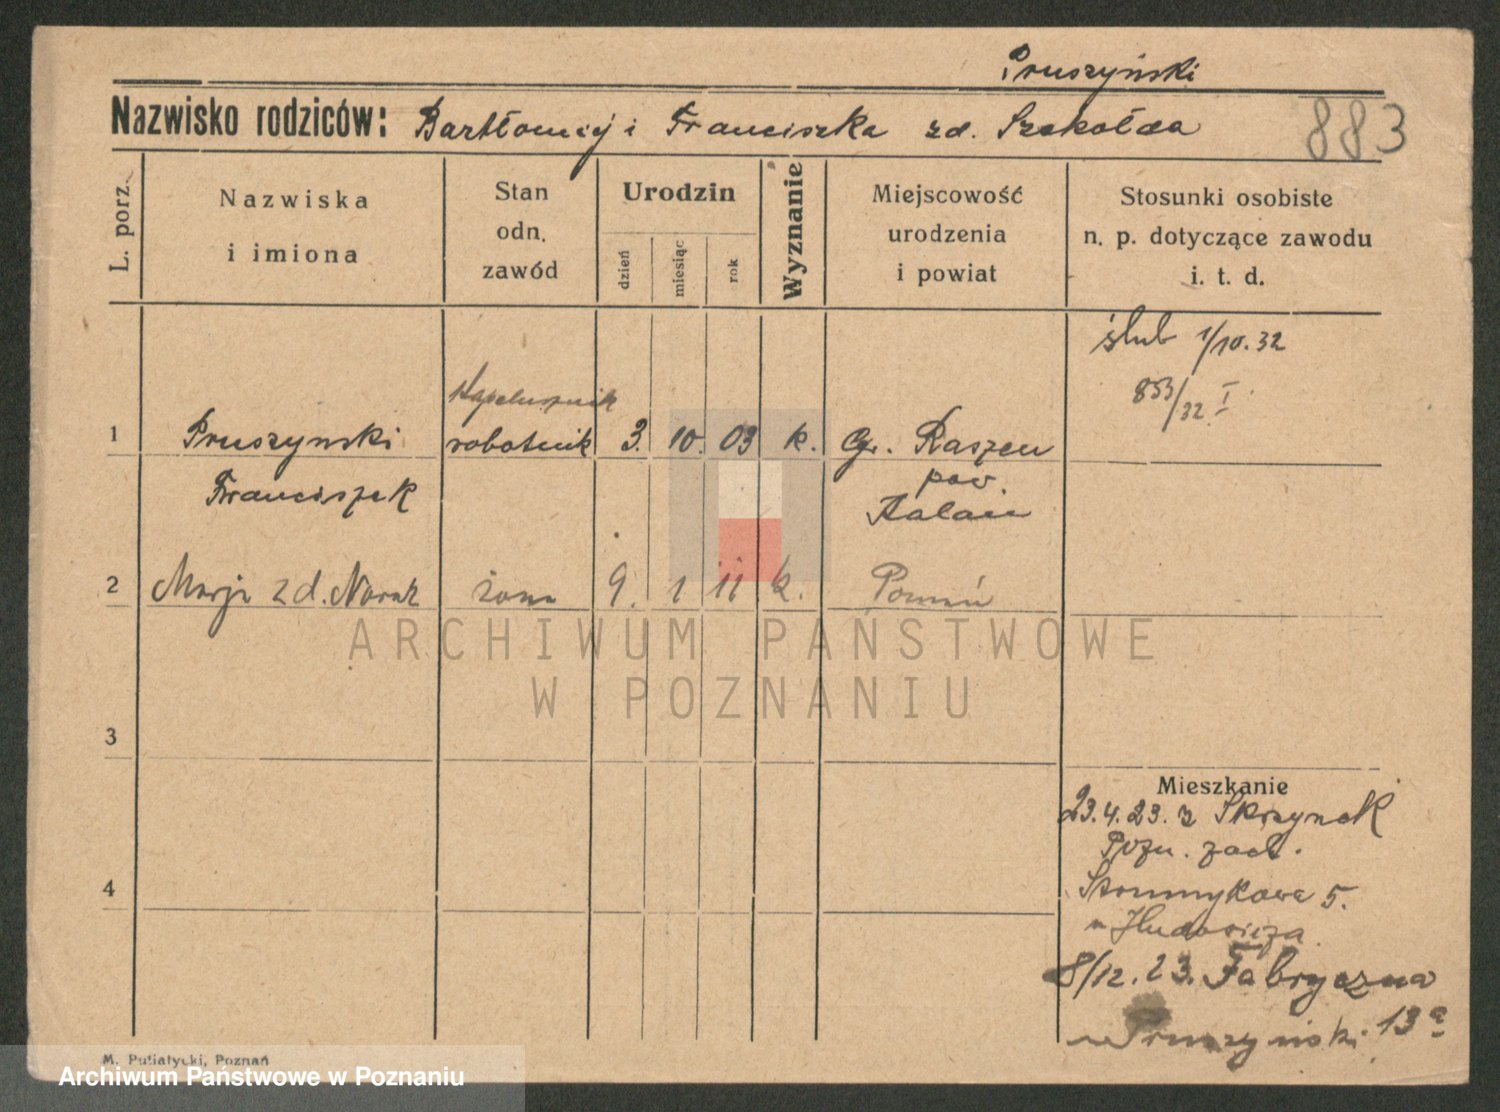 Pruszyński
Nazwisko rodziców: Bartłomiej i Franciszka zd. Szekołda
883
L. porz.
Nazwiska
i imiona
Stan
odn.
zawód
Urodzin
dzień
miesiąc
rok
Wyznanie
Miejscowość
urodzenia
i powiat
Stosunki osobiste
n. p. dotyczące zawodu
i. t. d.
ślub 1/10.32
853/32 I
kapelusznik
1 Pruszynski robotnik 3. 10. 03 k. Gr.
Franciszek
pow.
2 Marja zd. Nowak żona 9. 1 11 k. Poznań
ARCHIWUM PAŃSTWOWE
W POZNANIU
3
Mieszkanie
23.4.23. z Skrzynek
Pozn. zach.
4
5.
8/12.23. Fabryczna
13a
Pruszyński
M. Putiatycki, Poznań
Archiwum Państwowe w Poznaniu